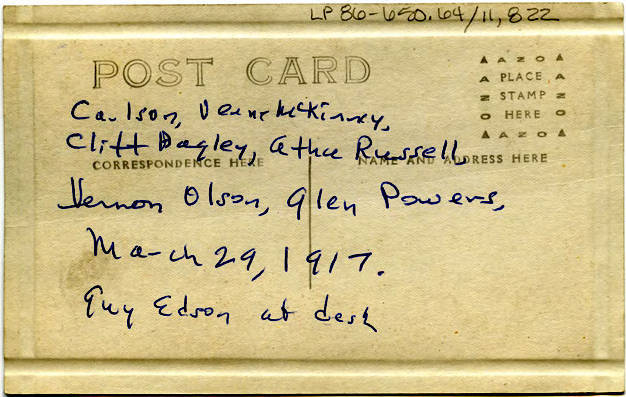 LP 86-650.64/11,822
POST CARD
AZO
PLACE
STAMP
HERE
AZO
Carlson, Verne McKinney,
Cliff Dagley, Russell,
CORRESPONDENCE HERE
NAME AND ADDRESS HERE
Vernon Olson, Glen Powers,
March 29, 1917.
Guy Edson at desk